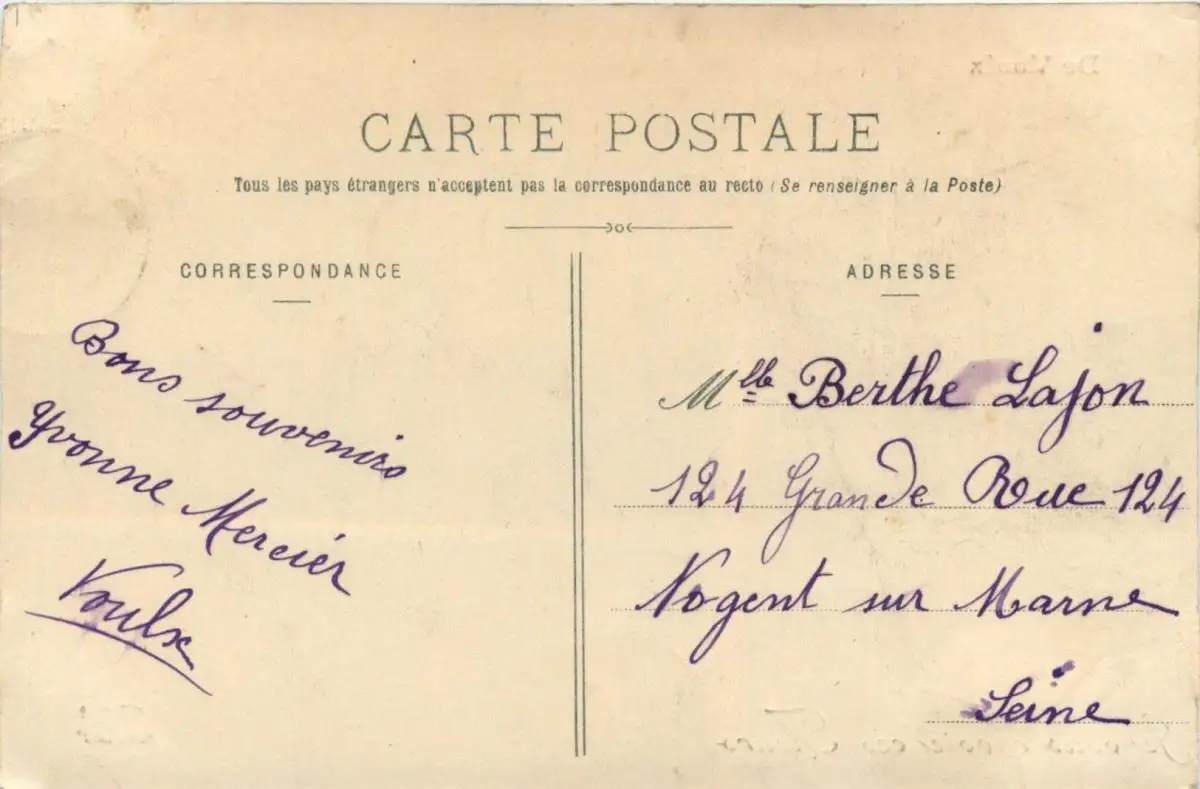 CARTE POSTALE
Tous les pays étrangers n'acceptent pas la correspondance au recto (Se renseigner à la Poste)
CORRESPONDANCE
Bons souvenirs
Yvonne Mercier
Voulx
ADRESSE
Mlle Berthe Lajon
124 Grande Rue 124
Nogent sur Marne
Seine